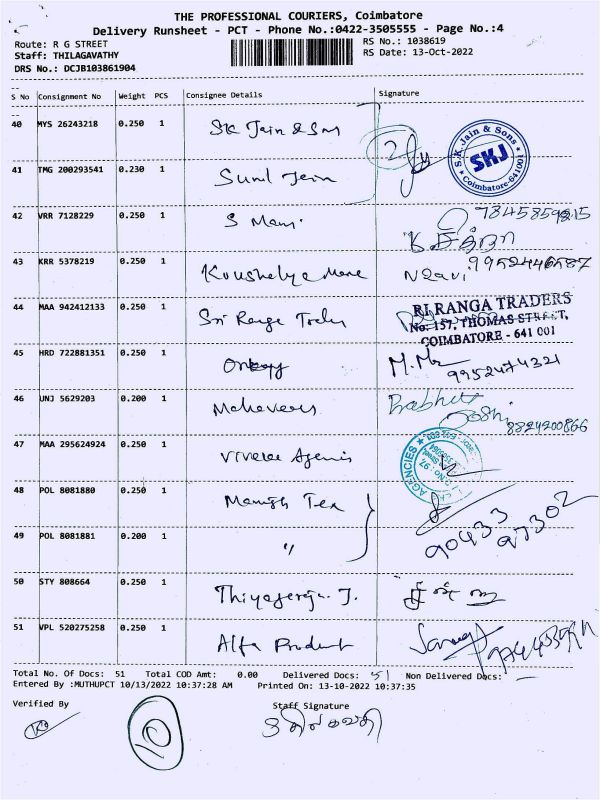 THE PROFESSIONAL COURIERS, Coimbatore
Delivery Runsheet - PCT - Phone No.:0422-3505555 - Page No.:4
Route: R G STREET
RS No.: 1038619
Staff: THILAGAVATHY
RS Date: 13-Oct-2022
DRS No.: DCJB103861904
S No Consignment No Weight PCS Consignee Details Signature
40 MYS 26243218 0.250 1 S.K Jain & Sons 2
S.K. Jain & Sons SKJ Coimbatore-641001
41 TMG 200293541 0.230 1 Sunil Jain
42 VRR 7128229 0.250 1 S Mani
43 KRR 5378219 0.250 1 9952446587
44 MAA 942412133 0.250 1 Sri Ranga
RI RANGA TRADERS
No: 157, THOMAS STREET,
COIMBATORE - 641 001
45 HRD 722881351 0.250 1 9952474321
46 UNJ 5629203 0.200 1 Prabhu
Joshi 8824200866
47 MAA 295624924 0.250 1 AGENCIES
48 POL 8081880 0.250 1 Manish Tex
49 POL 8081881 0.200 1 " 90433 97302
50 STY 808664 0.250 1 Thiyagaraja J.
51 VPL 520275258 0.250 1 Alfa Product
Total No. Of Docs: 51 Total COD Amt: 0.00 Delivered Docs: 51 Non Delivered Docs: —
Entered By :MUTHUPCT 10/13/2022 10:37:28 AM Printed On: 13-10-2022 10:37:35
Verified By Staff Signature